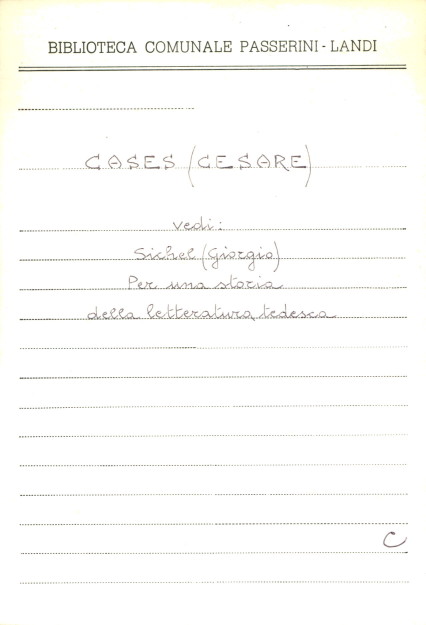 BIBLIOTECA COMUNALE PASSERINI - LANDI
CASES (CESARE)
vedi:
Sichel (Giorgio)
Per una storia
della letteratura tedesca
C